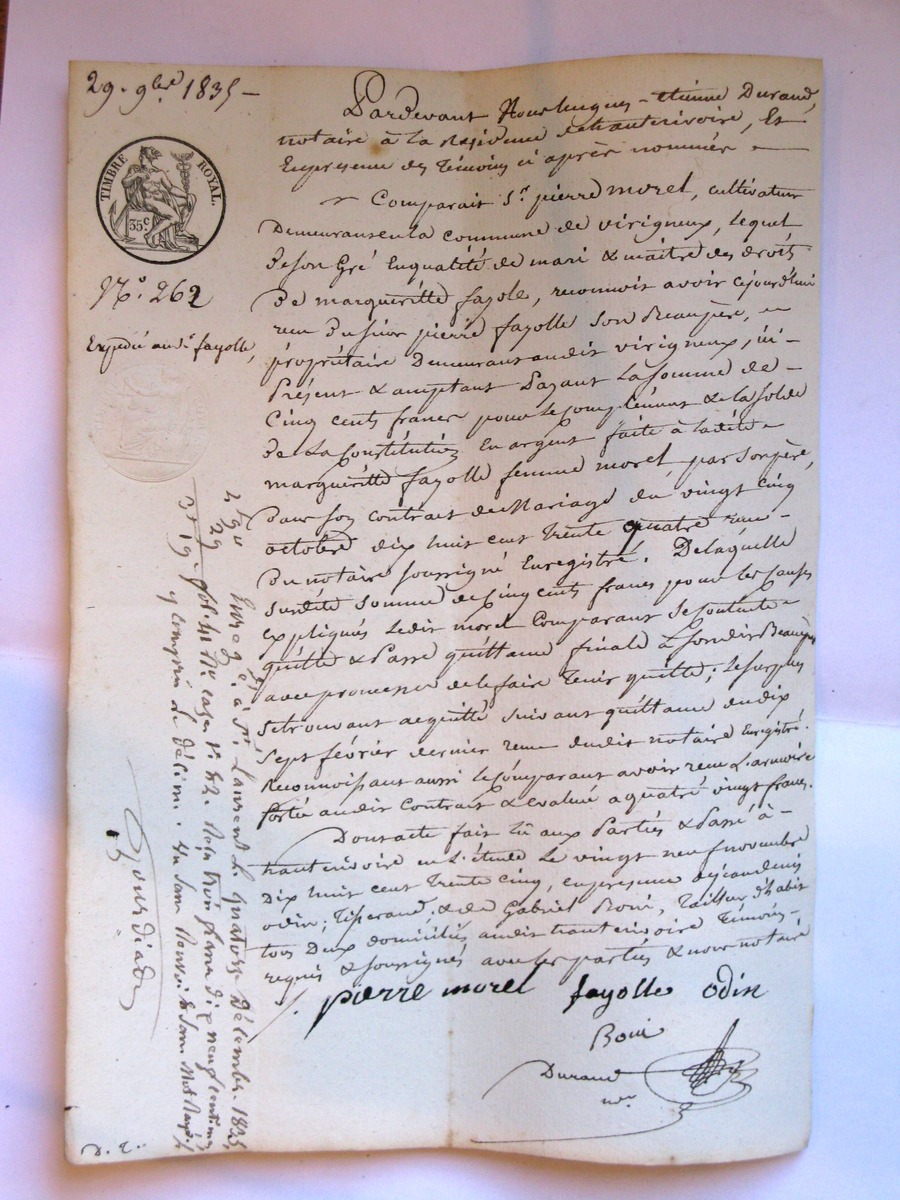 29. 9bre 1835 —
TIMBRE ROYAL.
35 c
No. 262
Expédié au Sr. fayolle,
Pardevant Nous hugues-etienne Durand,
notaire à la Residence de hauterivoire, Et
En presence des Témoins ci après nommés —
Comparait Sr. pierre morel, cultivateur
Demeurant en la commune de virigneux, lequel
De son Gré En qualité de mari & maitre des droits
De marguéritte fayolle, reconnoit avoir cejourd'hui
recu Du sieur pierre fayolle Son Beaupère,
propriétaire Demeurant audit virigneux, ici -
Présent & acceptant Payant La somme de -
Cinq cents francs pour le complément & la solde
De La Constitution En argent faite à ladite -
marguéritte fayolle femme morel par son père,
Dans son contrat de Mariage du vingt cinq
octobre dix huit cent trente quatre recu -
Du notaire soussigné Enregistré. De laquelle
susdite somme de cinq cents francs pour les causes
expliqués Ledit morel Comparant Se contente -
quitte & Passe quittance finale à Son dit Beaupère
avec promesse de le faire tenir quitte; le surplus
se trouvant acquitté suivant quittance du dix
Sept février dernier recue dudit notaire Enregistré.
Reconnoissant aussi le comparant avoir recu L'armoire
Portée audit Contrat & Evalué a quatre vingt francs.
Dont acte fait Lû aux Parties & Passé à -
hauterivoire en L'étude Le vingt neuf novembre
Dix huit cent trente cinq, en presence de
odin, Tisserand, & de Gabriel Boni, Tailleur d'habit
tous Deux domiciliés audit hauterivoire Témoins -
requis & soussignés avec les parties & nous notaire
pierre morel fayolle odin
Boni
Durand
nre
Enreg. à St. Laurent le quatorze Décembre 1835
y compris le décime.